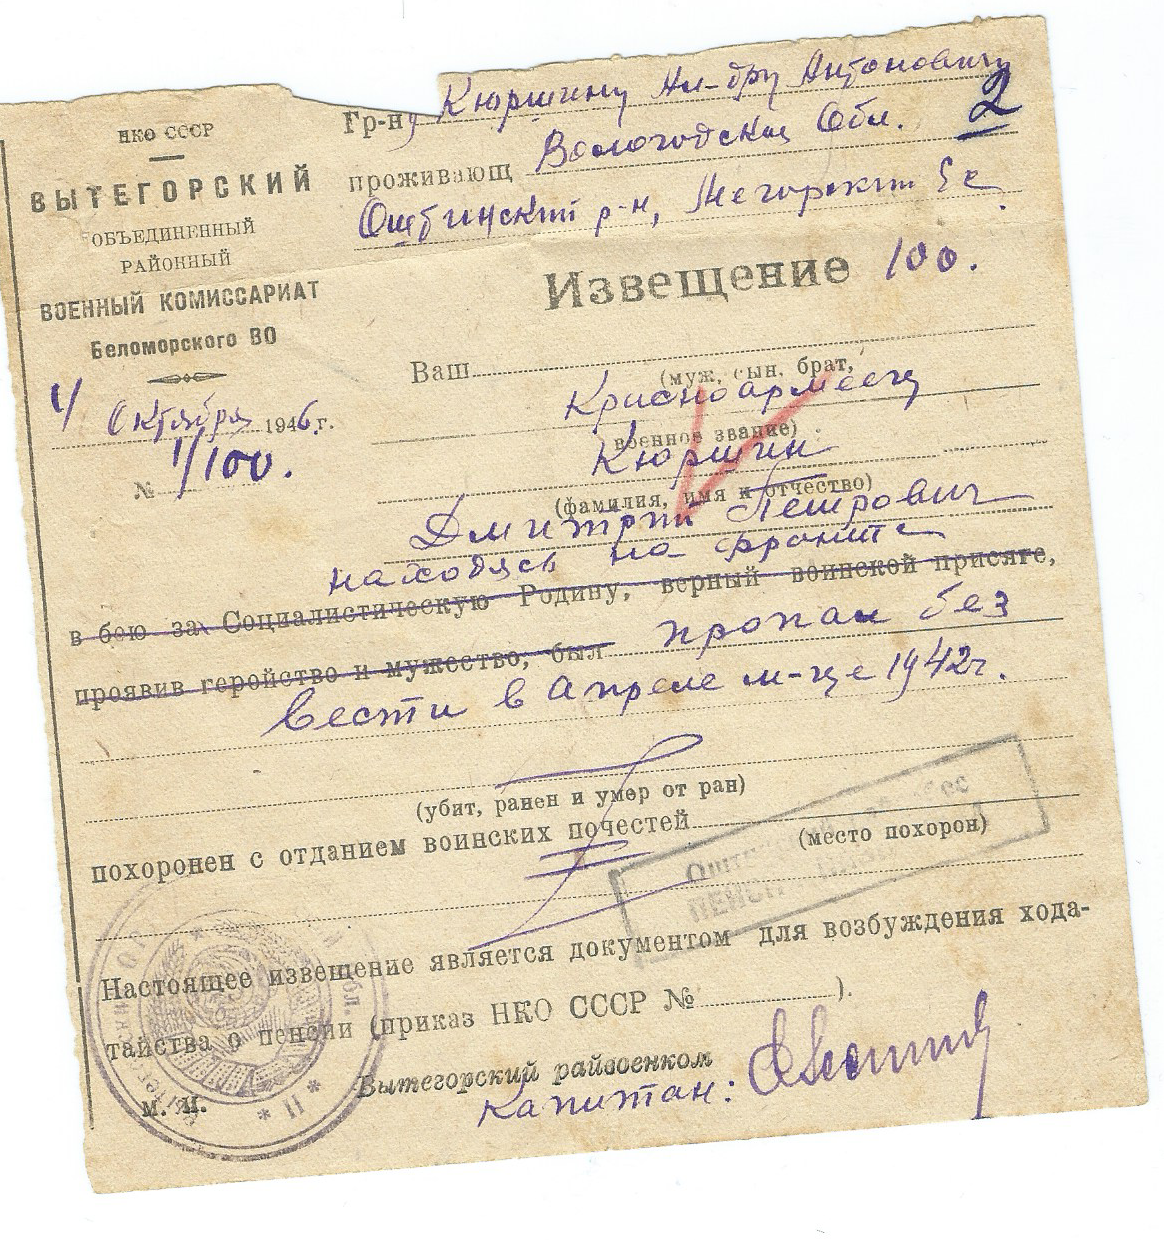 НКО СССР
ВЫТЕГОРСКИЙ
ОБЪЕДИНЕННЫЙ
РАЙОННЫЙ
ВОЕННЫЙ КОМИССАРИАТ
Беломорского ВО
4 Октября 1946 г.
№ 1/100.
Гр-ну Кюршину Ал-дру Антоновичу
2
проживающ Вологодская Обл.
Оштинский р-н, Мегорский с/с
Извещение 100.
Ваш
(муж, сын, брат,
Красноармеец
военное звание)
Кюршин
(фамилия, имя и отчество)
Дмитрий Петрович
находясь на фронте
в бою за Социалистическую Родину, верный воинской присяге,
проявив геройство и мужество, был пропал без
вести в Апреле м-це 1942г.
(убит, ранен и умер от ран)
похоронен с отданием воинских почестей
(место похорон)
Настоящее извещение является документом для возбуждения хода-
тайства о пенсии (приказ НКО СССР № ).
Вытегорский райвоенком
М. П.
Капитан: